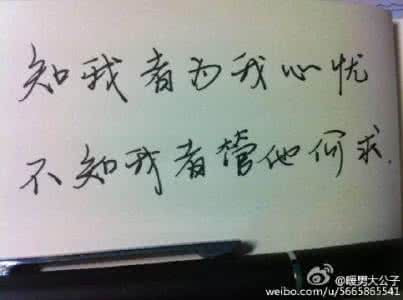 知我者为我心忧
不知我者管他何求.
暖男大公子
weibo.com/u/5665865541